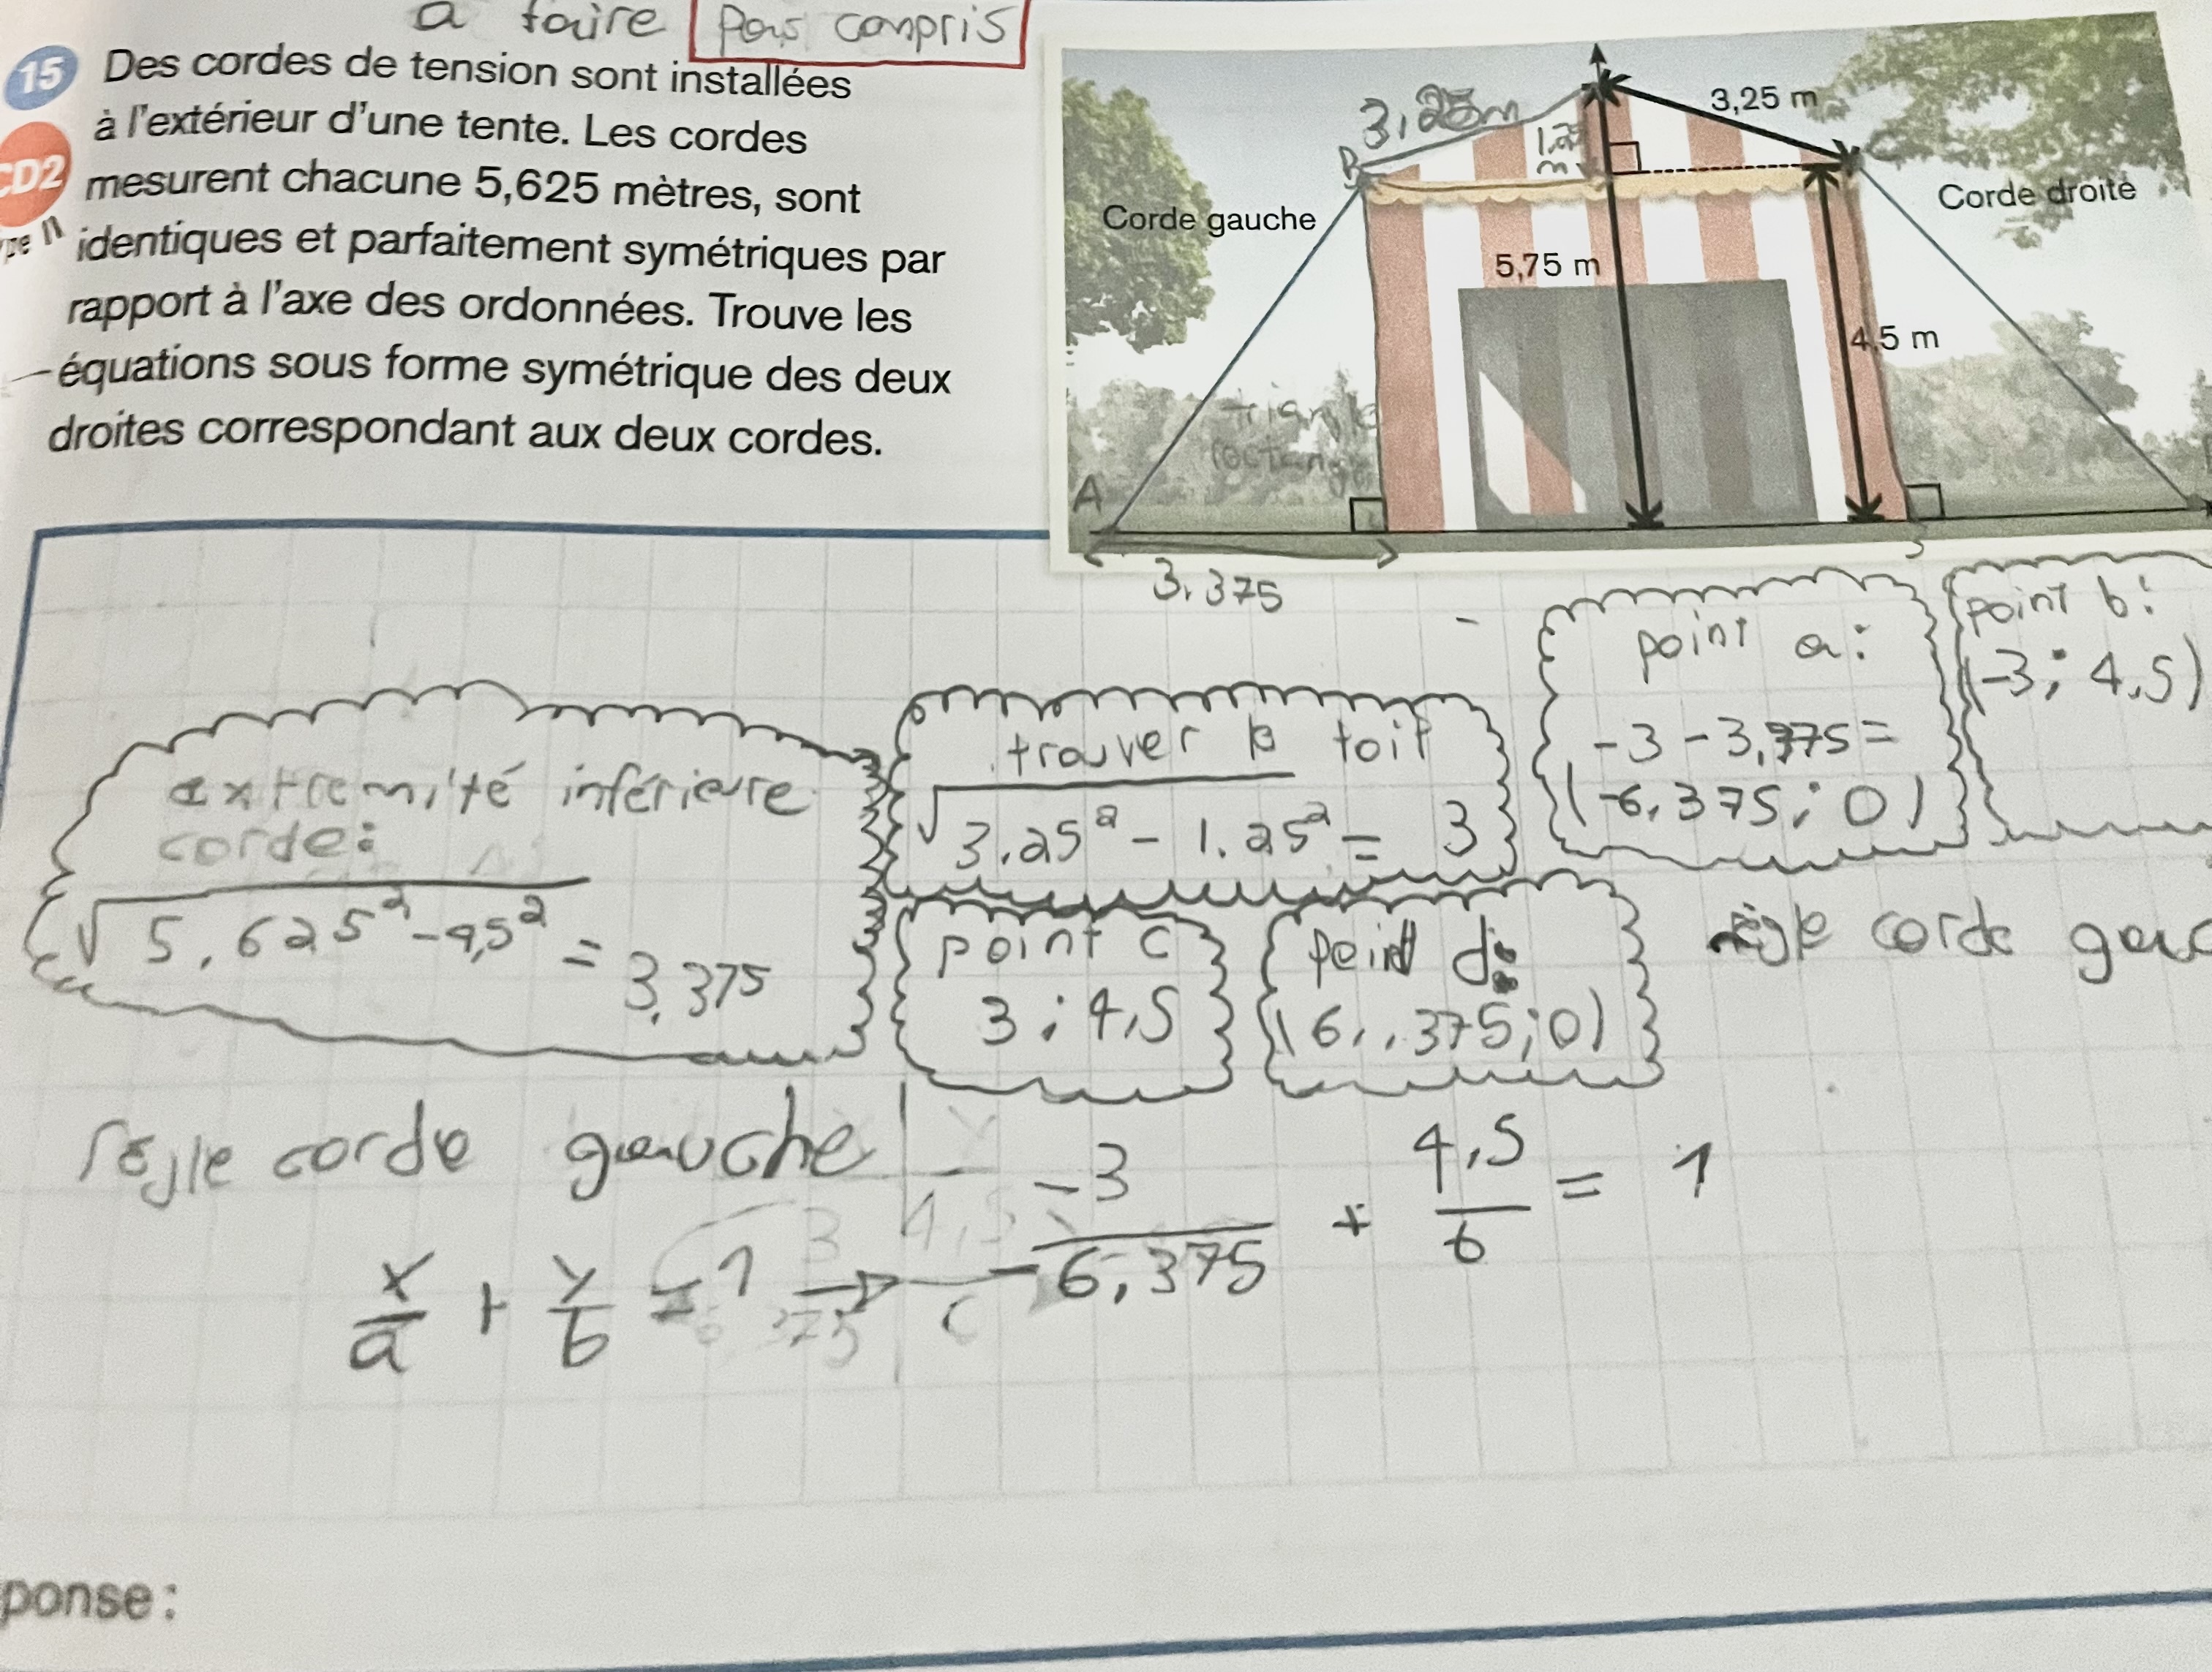 a faire pas compris
15 Des cordes de tension sont installées
à l'extérieur d'une tente. Les cordes
CD2 mesurent chacune 5,625 mètres, sont
identiques et parfaitement symétriques par
rapport à l'axe des ordonnées. Trouve les
équations sous forme symétrique des deux
droites correspondant aux deux cordes.
3,25 m
3,25 m
1,25
m
B
C
Corde gauche
Corde droite
5,75 m
4,5 m
triangle
rectangle
A
3.375
point a:
-3 - 3,375 =
(-6.375; 0)
point b:
(-3; 4,5)
extremité inférieure
corde:
√5,625² - 4,5² = 3.375
trouver le toit
√3.25² - 1.25² = 3
point c
3; 4,5
point d:
(6,,375;0)
règle corde gauc
règle corde gauche
x/a + y/b = 1 → -3/-6,375 + 4,5/b = 1
ponse :